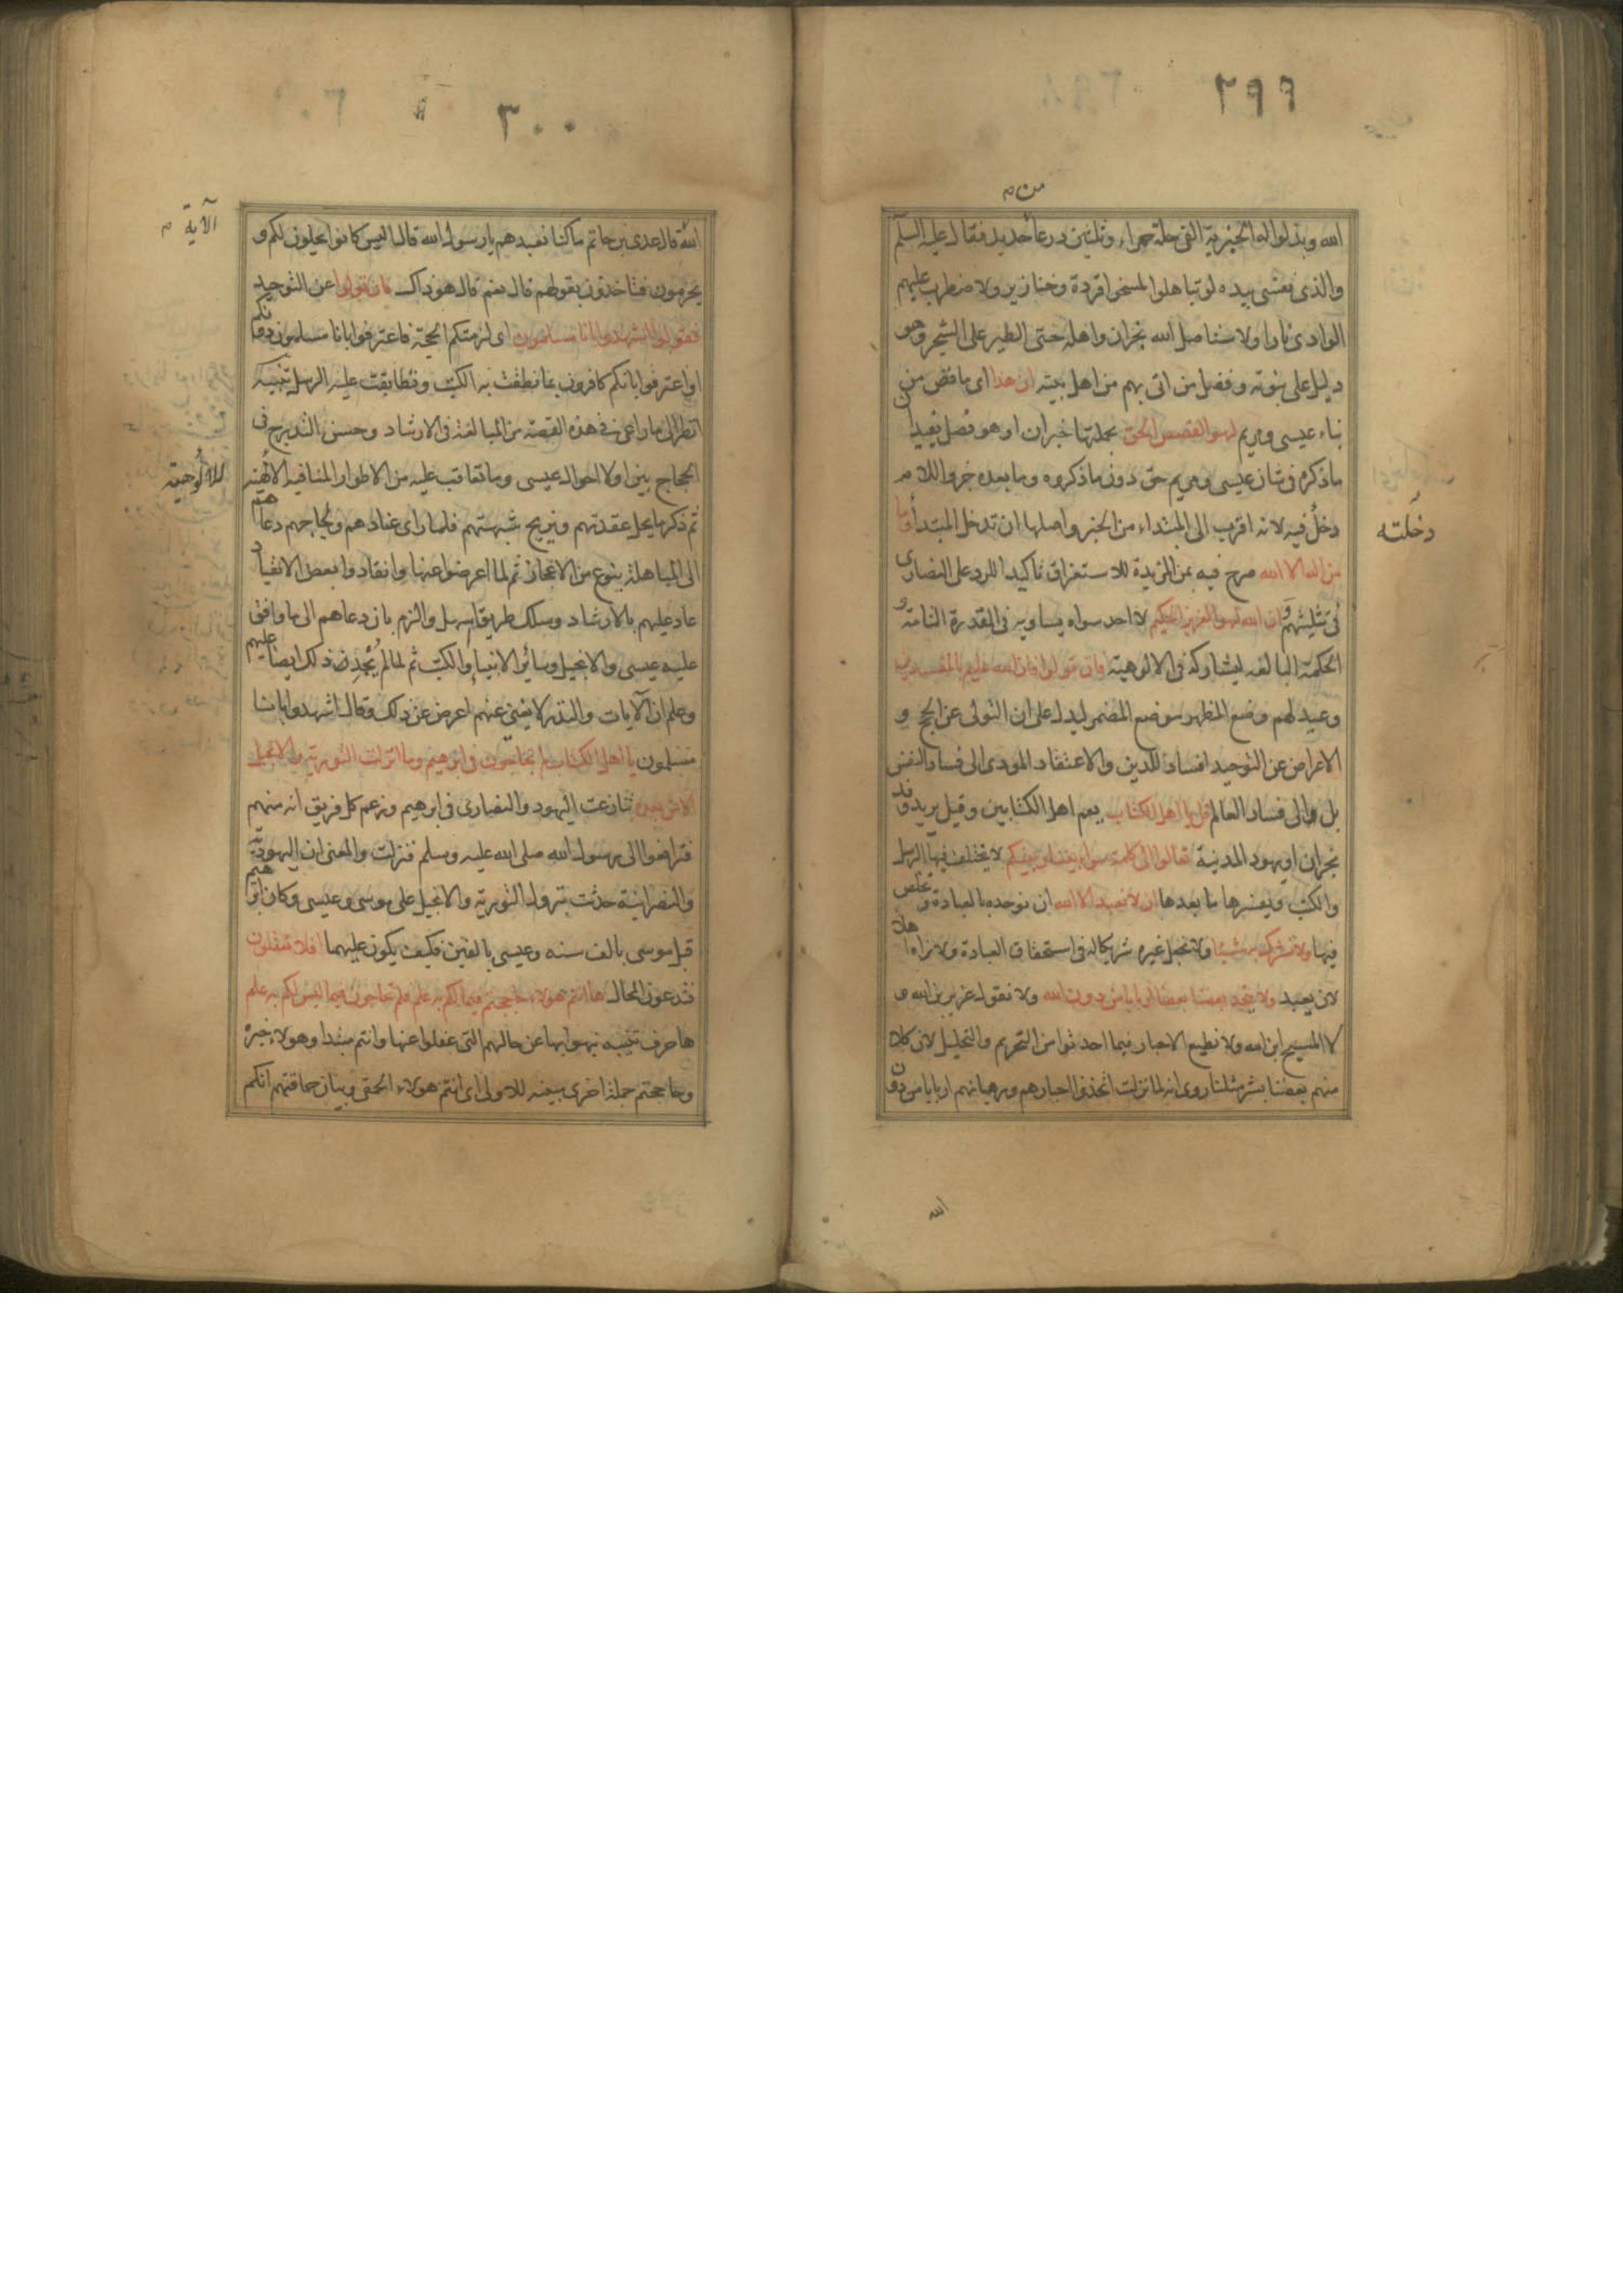 ٢٩٩
من م
الله وبذلوا له الجزية الفى حلة حمراء وثلثين درعا حديد فقال عليه السلم
والذى نفسى بيده لو تباهلوا لمسخوا قردة وخنازير ولاضطرب عليهم
الوادى نارا ولاستاصل الله نجران واهله حتى الطير على الشجر وهو
دليل على نبوته وفضل من اتى بهم من اهل بيته ان هذا اى ما قص من
نباء عيسى ومريم لهو القصص الحق بجملتها خبر ان او هو فصل يفيد ان
ما ذكره فى شان عيسى ومريم حق دون ما ذكروه وما بعده خبر واللام
دخل فيه لانه اقرب الى المبتداء من الخبر واصلها ان تدخل المبتدأ وما
دخلته
من اله الا الله صرح فيه بمن المزيدة للاستغراق تاكيدا للرد على النصارى
فى تثليثهم وان الله لهو العزيز الحكيم لا احد سواه يساويه فى القدرة التامة و
الحكمة البالغه ليشاركه فى الالوهية فان تولوا فان الله عليم بالمفسدين
وعيد لهم وضع المظهر موضع المضمر ليدل على ان التولى عن الحجج و
الاعراض عن التوحيد افساد للدين والاعتقاد المودى الى فساد النفس
بل والى فساد العالم قل يا اهل الكتاب يعم اهل الكتابين وقيل يريد وفد
نجران او يهود المدينة تعالوا الى كلمة سواء بيننا وبينكم لا يختلف فيها الرسل
والكتب ويفسرها ما بعدها ان لا نعبد الا الله ان نوحده بالعبادة ونخلص
فيها ولا نشرك به شيئا ولا نجعل غيره شريكا له فى استحقاق العبادة ولا نراه اهلا
لان يعبد ولا يتخذ بعضنا بعضا اربابا من دون الله ولا نقول عزير بن الله و
لا المسيح ابن الله ولا نطيع الاحبار فيما احدثوا من التحريم والتحليل لان كلا
منهم بعضنا بشر مثلنا روى انه لما نزلت اتخذوا احبارهم ورهبانهم اربابا من دون
الله
٣٠٠
الآية م
الله قال عدى بن حاتم ما كنا نعبدهم يا رسول الله قال اليس كانوا يحلون لكم و
يحرمون فتاخذون بقولهم قال نعم قال هو ذاك فان تولوا عن التوحيد
فقولوا اشهدوا بانا مسلمون اى لزمتكم الحجة فاعترفوا بانا مسلمون دونكم
او اعترفوا بانكم كافرون بما نطقت به الكتب وتطابقت عليه الرسل تنبيه
انظر الى ما راعى فى هذه القصة من المبالغة فى الارشاد وحسن التدريج فى
الحجاج بين اولا احوال عيسى وما تعاقب عليه من الاطوار المنافيه الالهية
للالوهية
ثم ذكر ما يحل عقدتهم ويزيح شبهتهم فلما راى عنادهم ولجاجهم دعاهم
الى المباهلة بنوع من الاعجاز ثم لما اعرضوا عنها وانقادوا بعض الانقياد
عاد عليهم بالارشاد وسلك طريقا اسهل والزم بان دعاهم الى ما وافق
عليه عيسى والانجيل وسائر الانبياء والكتب ثم لما لم يجد ذلك ايضا عليهم
وعلم ان الآيات والنذر لا يغنى عنهم اعرض عن ذلك وقال اشهدوا بانا
مسلمون يا اهل الكتاب لم تحاجون فى ابرهيم وما انزلت التورية والانجيل
الا من بعده تنازعت اليهود والنصارى فى ابرهيم وزعم كل فريق انه منهم
فترافعوا الى رسول الله صلى الله عليه وسلم فنزلت والمعنى ان اليهودية
والنصرانية حدثت بنزول التورية والانجيل على موسى وعيسى وكان ابرهيم
قبل موسى بالف سنه وعيسى بالفين فكيف يكون عليهما افلا تعقلون
فتدعون المحال ها انتم هولاء حاججتم فيما لكم به علم فلم تحاجون فيما ليس لكم به علم
ها حرف تنبيه نبهوا بها عن حالهم التى غفلوا عنها وانتم مبتدا وهولاء خبره
وحاججتم جملة اخرى مبينه للاولى اى انتم هولاء الحمقى وبيان حماقتهم انكم